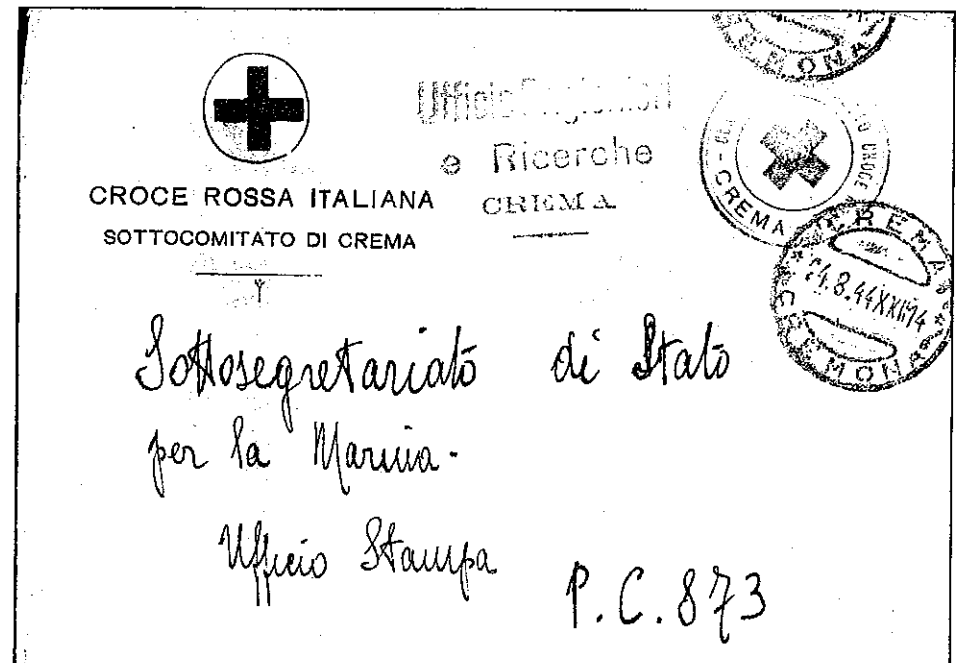 CROCE ROSSA ITALIANA
SOTTOCOMITATO DI CREMA
Ufficio Prigionieri
e Ricerche
CREMA
CREMONA
CROCE
CREMA
CREMA
4.8.44XXII14
CREMONA
Sottosegretariato di Stato
per la Marina.
Ufficio Stampa
P.C. 873